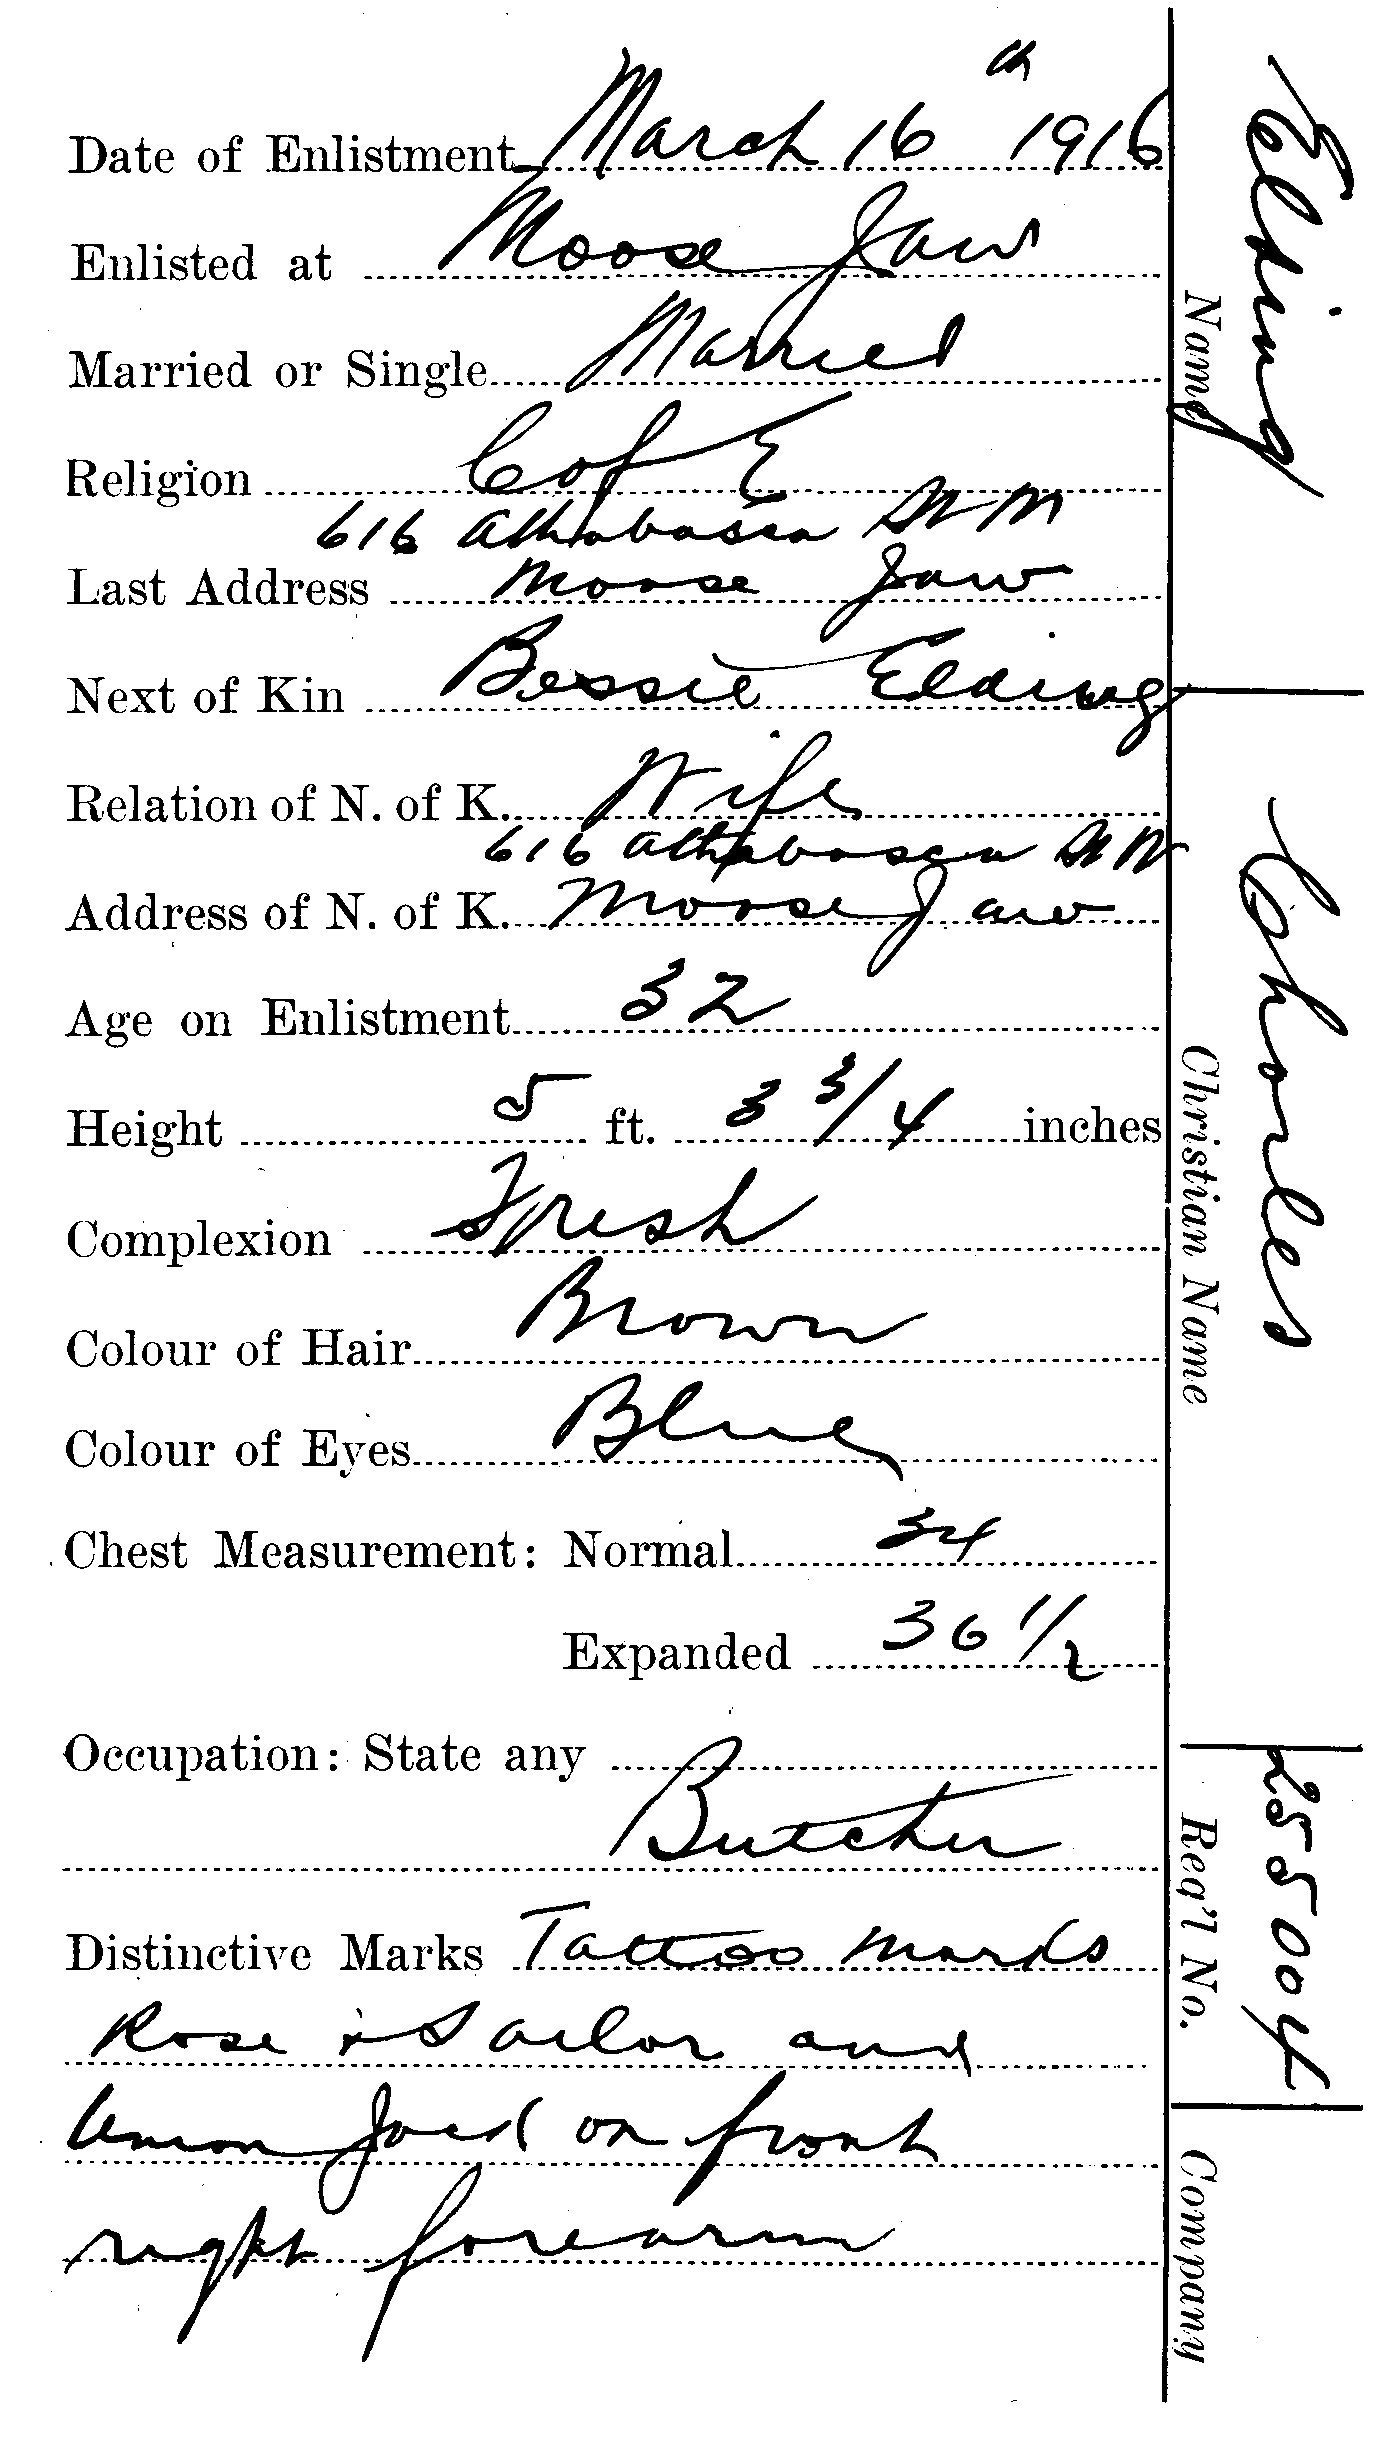 Date of Enlistment March 16th 1916
Enlisted at Moose Jaw
Married or Single Married
Religion C of E
616 Athabasca St
Last Address Moose Jaw
Next of Kin Bessie Elding
Relation of N. of K. Wife
616 Athabasca St W
Address of N. of K. Moose Jaw
Age on Enlistment 32
Height 5 ft. 3 3/4 inches
Complexion Fresh
Colour of Hair Brown
Colour of Eyes Blue
Chest Measurement: Normal 34
Expanded 36 1/2
Occupation: State any
Butcher
Distinctive Marks Tattoo marks
Rose & Sailor and
Union Jack on front
right forearm
Elding Charles 255004
Name Christian Name Reg'l No. Company